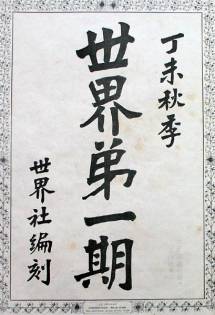 丁未秋季
世界第一期
世界社編刻